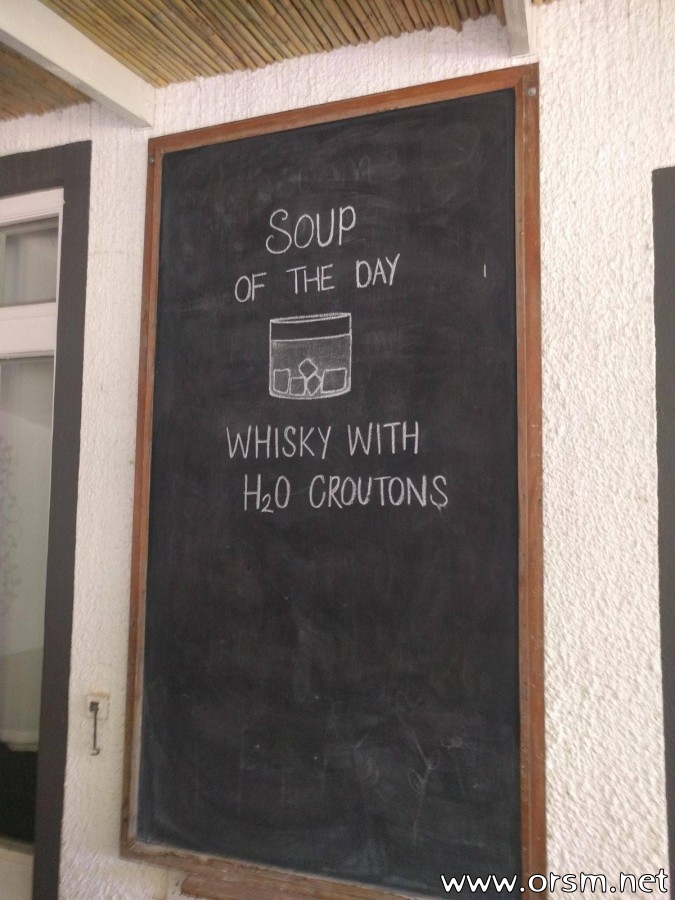 SOUP
OF THE DAY
WHISKY WITH
H₂O CROUTONS
www.orsm.net